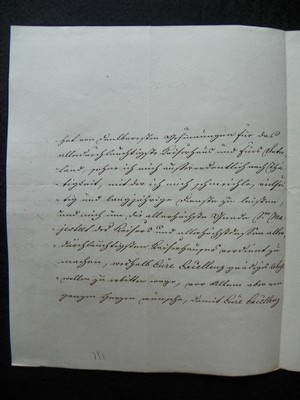 hat von dankbarsten Gesinnungen für das
allerdurchlauchtigste Kaiserhaus und fürs Vater
land, sehne ich mich außerordentlich nach Thä
tigkeit, mit der ich mir schmeichle,
tig und langjährige Dienste zu leisten,
und mich um die allerhöchste Gnade Sr Ma
jestät des Kaisers und allerhöchst dessen aller
durchlauchtigsten Kaiserhauses verdient zu
machen, weshalb Eure Excellenz gnädigst
wollen zu erbitten wage, vor Allem aber von
ganzem Herzen wünsche, damit Eure Excellenz